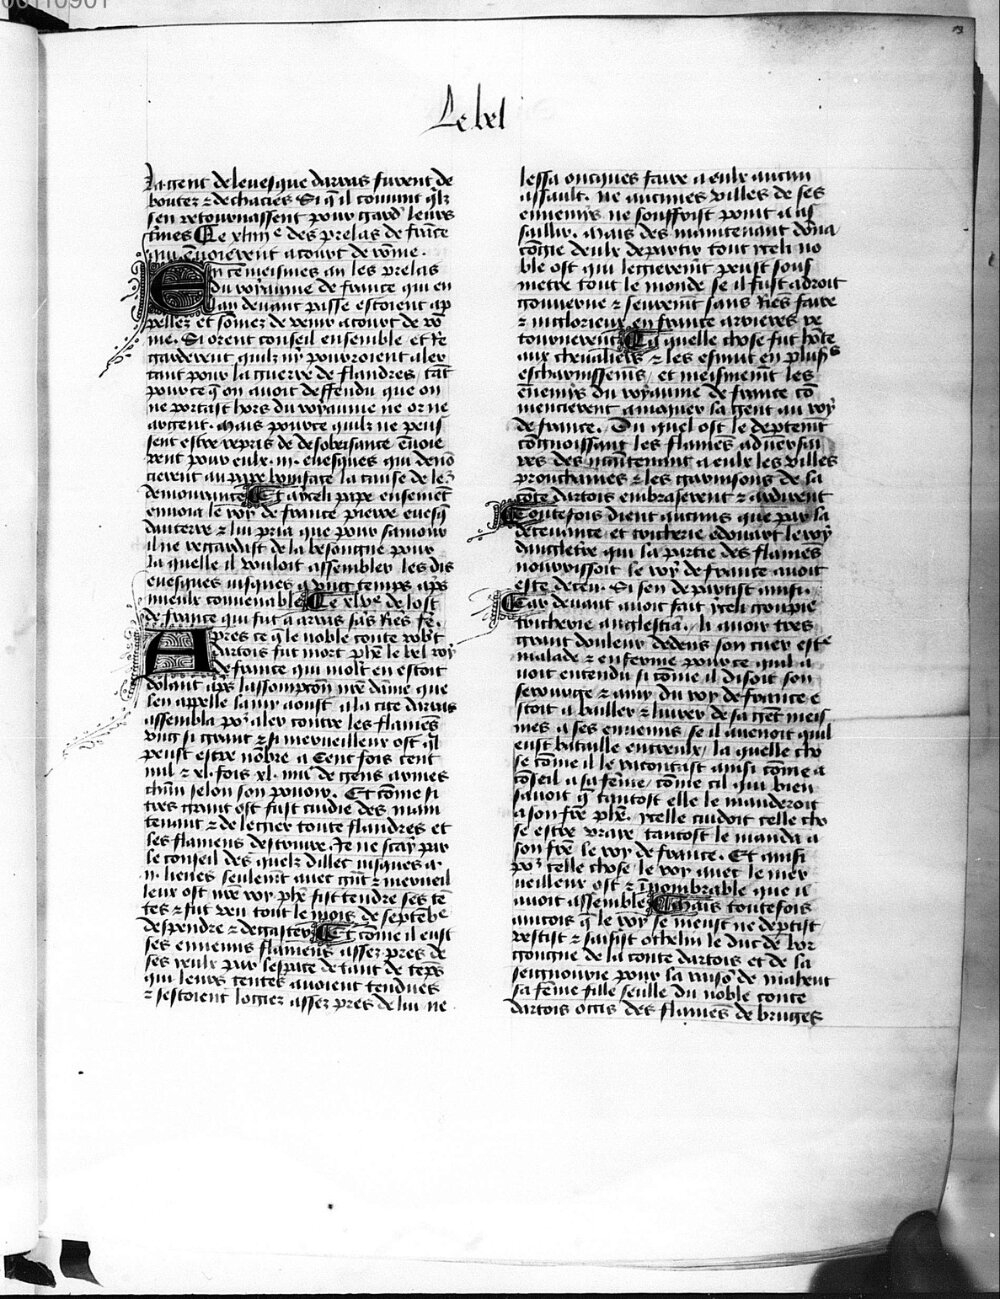 Le bel
la gent de levesque darras furent de
boutez ⁊ dechaciés Si q̃ il convint qlz
sen retournassent pour gard̛ leurs
t̃mes Le xliiii e des p̃relas de frãce
qui ẽvoierent a court de rõme.
En ce meismes an les prelas
du royaume de france qui en
lan devant passe estoient ap
pellez et sõmez de venir a court de rõ
me. Si orent conseil ensemble et re
garderent quilz ny pourroient aler
tant pour la guerre de flandres / tãt
pour ce q̃ on avoit deffendu que on
ne portast hors du royaume ne or ne
argent. Mais pour ce quilz ne peus
sent estre repris de desobeissance ẽvoie
rent pour eulx .iii. evesques qui denõ
cierent au pape boniface la cause de le
demourance Et a yceli pape ensemẽt
envoia le roy de france pierre evesq̃
daucerre ⁊ lui pria que pour samour
il ne regardast de la besongne pour
la quelle il vouloit assembler les dis
evesques jusques a vng temps aps̃
mieulx convenable Le xlve de lost
de france qui fut a arras sãs riẽs fẽ.
Apres ce q̃ le noble conte robt̃
dartois fut mort phẽ le bel roy
de france qui molt en estoit
dolant aps̃ lassompcõn nrẽ dãme que
len appelle la my aoust a la cite darras
assembla po² aler contre les flamẽs
vng si grant ⁊ si merveilleux ost q̃l
peust estre nõbre a cent fois cent
mil ⁊ xl. fois xl. mil de gens armes
chũn selon son pouoir. Et cõme si
tres grant ost fust cuidie des main
tenant ⁊ de legier toute flandres et
les flamens destruire. Je ne scay par
le conseil des quelz dillec jusques a
.ii. lieues seulemt avec grãt ⁊ merveil
leux ost nrẽ roy phẽ fist tendre ses tẽ
tes ⁊ fut veu tout le mois de septẽbẽ
despendre ⁊ degaster Et cõme il eust
ses ennemis flamens assez pres de
ses yeulx par lespace de tant de tẽps
qui leurs tentes avoient tendues
⁊ sestoient logiez assez pres de lui ne
lessa oncques faire a eulx aucun
assault. Ne aucunes villes de ses
ennemis ne souffrist point a as
saillir. Mais des maintenant dõna
cõgie deulx departir tout yceli no
ble ost qui legieremt peust sous
metre tout le monde se il fust a droit
gouverne ⁊ seuremt sans riẽs faire
⁊ inglorieux en france arrieres re
tournerent La quelle chose fut hõte
aux chevaliers ⁊ les esmut en plus̃s
escharnissemẽs / et meismemt les
ennemis du royaume de france cõ
mencierent a moquer la gent au roy
de france. Du quel ost le deptemt
cõgnoissant les flamẽs adversai
res des maintenant a eulx les villes
prouchaines ⁊ les garnisons de la
cõte dartois embraserent ⁊ ardirent
Toutefois dient aucuns que par la
decevance et tricherie edouart le roy
dangletrẽ qui la partie des flamẽs
nourrissoit le roy de france avoit
este deceu. Si sen departist ainsi.
Car devant avoit fait yceli groupie
tricherie anglesch̃a. Il avoit tres
grant douleur dedens son cuer este
malade ⁊ enferme pour ce quil a
voit entendu si cõme il disoit son
serourge ⁊ amy du roy de france e
stoit a bailler ⁊ livrer de sa gẽt meis
mes a ses ennemis se il avenoit quil
eust bataille entreulx / la quelle cho
se cõme il le racontast ainsi cõme a
cõseil a sa fẽme / cõme cil qui bien
savoit q̃ tantost elle le manderoit
a son frẽ phẽ. ycelle cuidoit celle cho
se estre vraye tantost le manda a
son frẽ le roy de france. Et ainsi
po² telle chose le roy avec le mer
veilleux ost ⁊ ĩnombrable que il
avoit assemble Mais toutefois
aincois q̃ le roy se meust ne deptist
vestist ⁊ saisist othelin le duc de bor
gongne de la conte dartois et de la
seignourie pour la raisõ de mahaut
sa fẽme fille seulle du noble conte
dartois occis des flamẽs de bruges